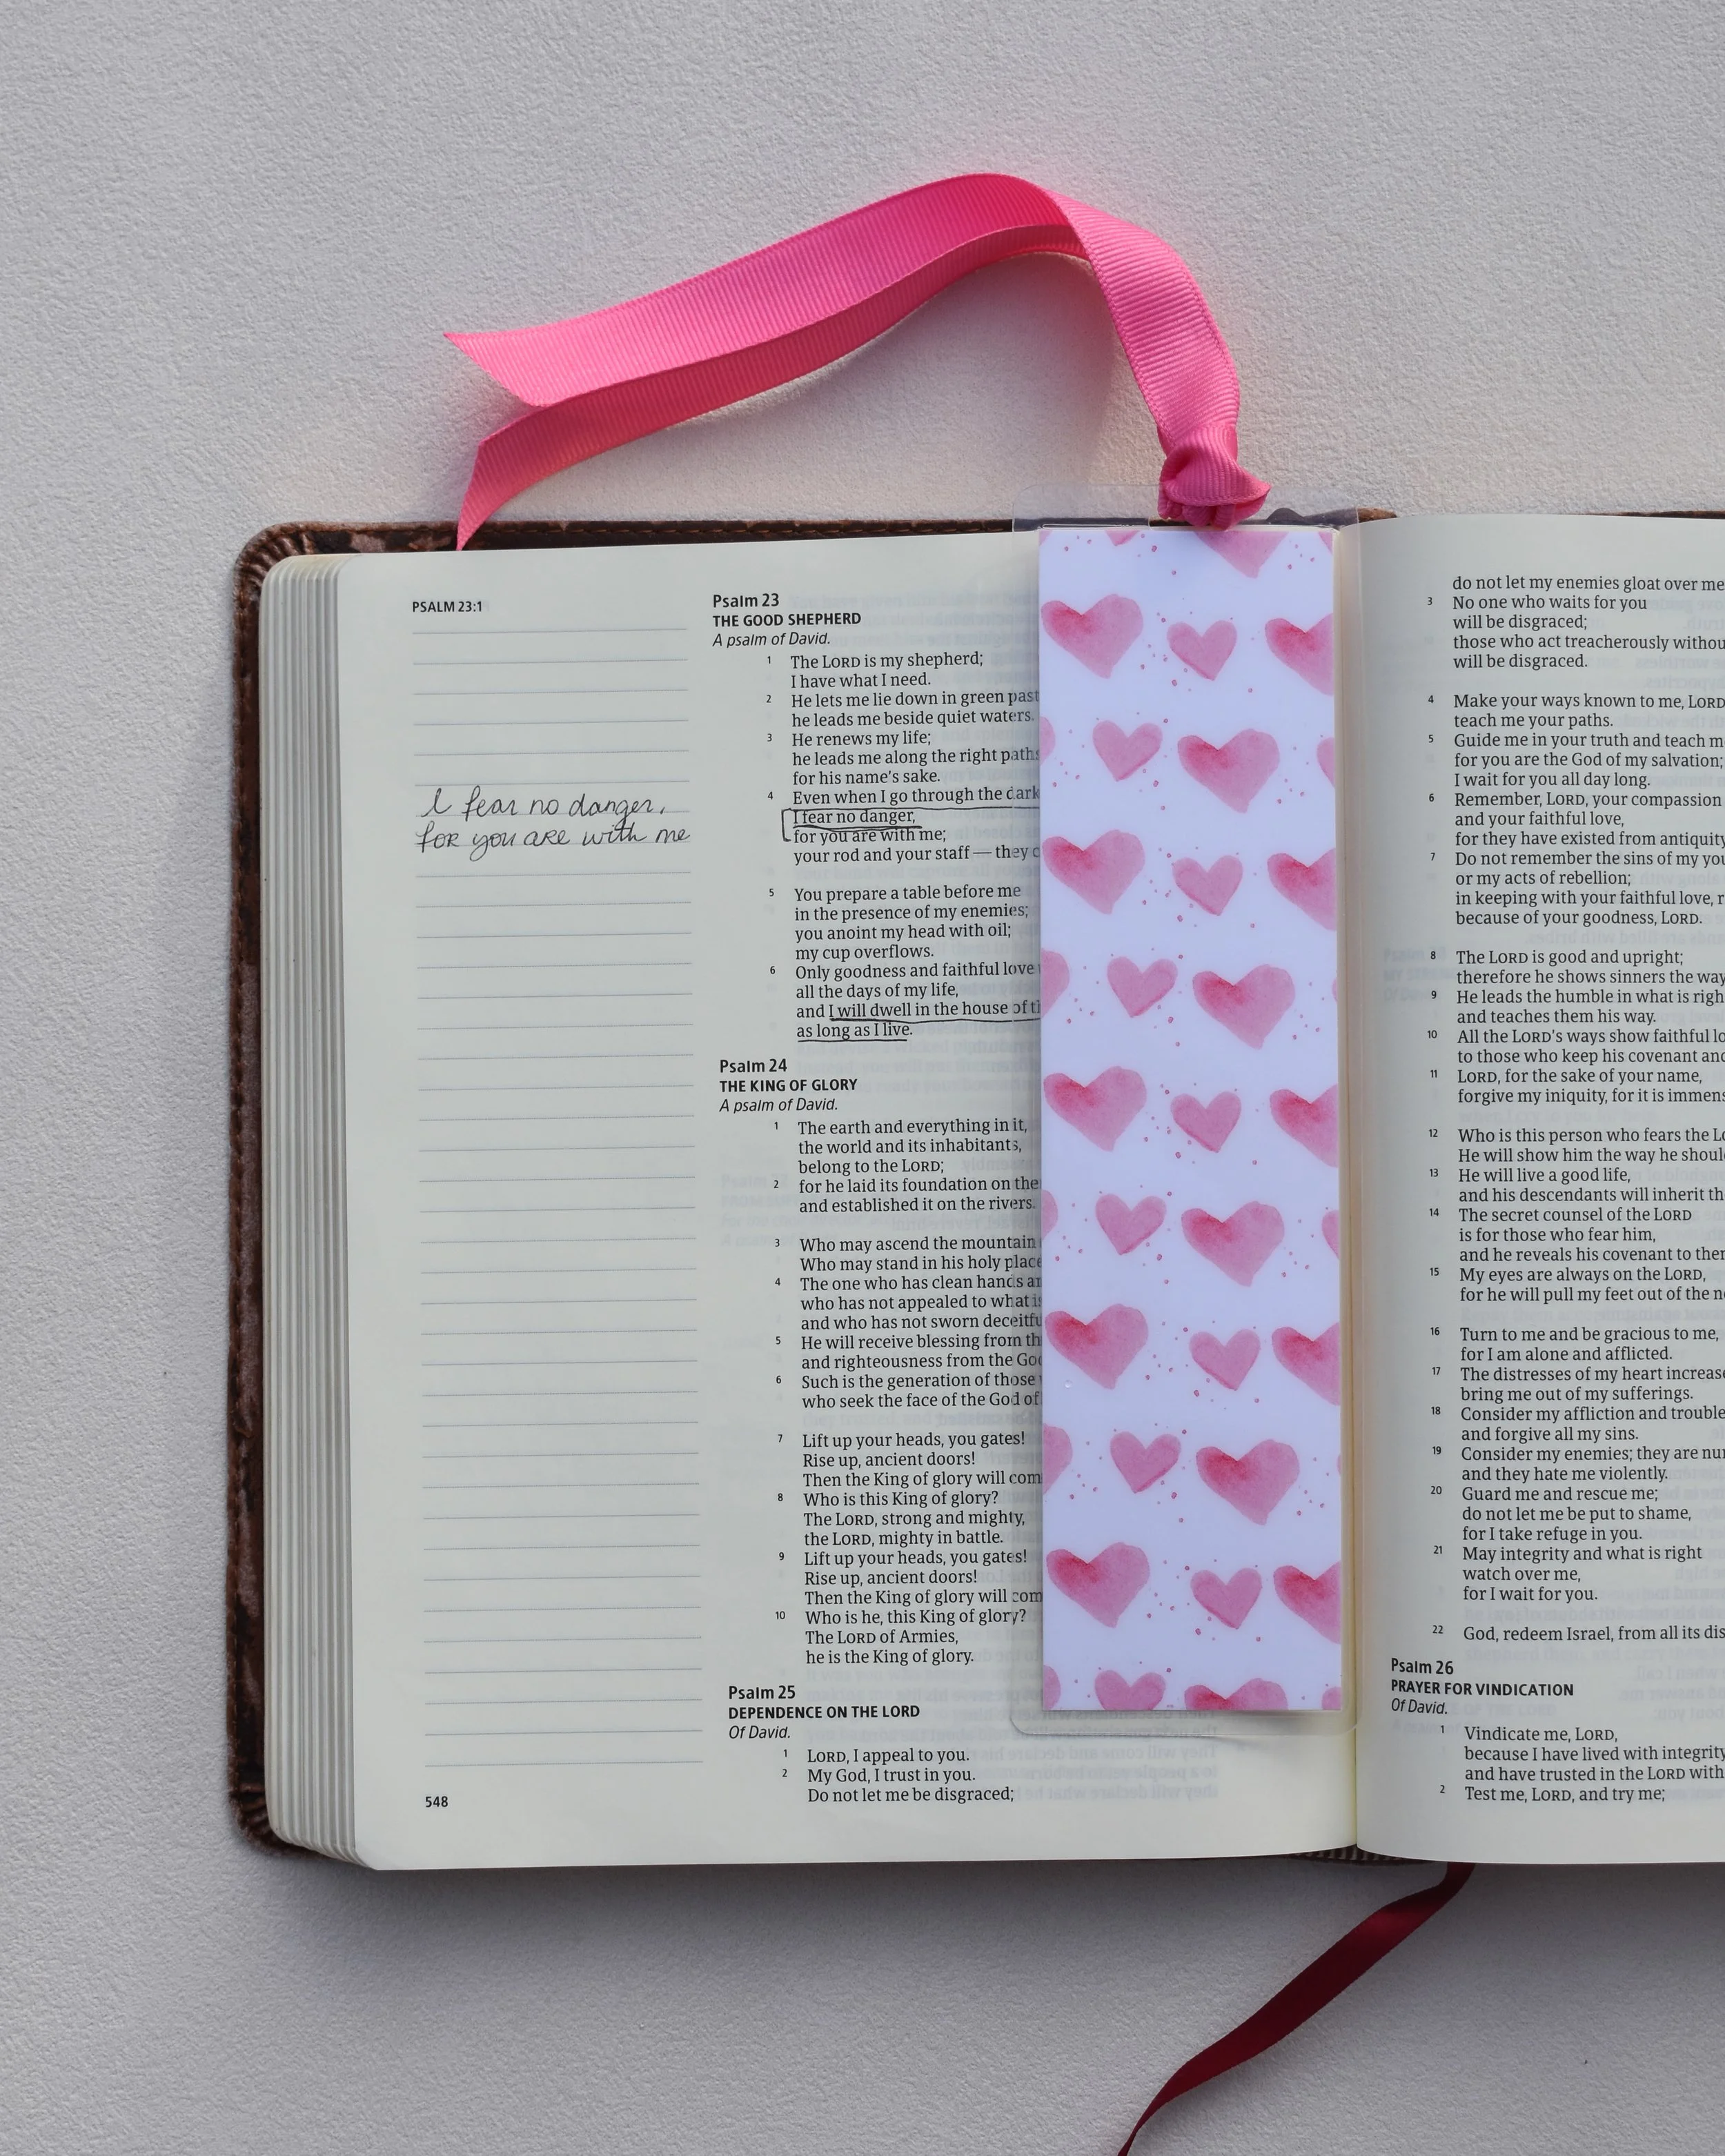 PSALM 23:1
I fear no danger,
for you are with me
548
Psalm 23
THE GOOD SHEPHERD
A psalm of David.
1 The LORD is my shepherd;
I have what I need.
2 He lets me lie down in green past
he leads me beside quiet waters.
3 He renews my life;
he leads me along the right paths
for his name's sake.
4 Even when I go through the dark
I fear no danger,
for you are with me;
your rod and your staff — they c
5 You prepare a table before me
in the presence of my enemies;
you anoint my head with oil;
my cup overflows.
6 Only goodness and faithful love
all the days of my life,
and I will dwell in the house of
as long as I live.
Psalm 24
THE KING OF GLORY
A psalm of David.
1 The earth and everything in it,
the world and its inhabitants,
belong to the LORD;
2 for he laid its foundation on the
and established it on the rivers.
3 Who may ascend the mountain
Who may stand in his holy place
4 The one who has clean hands a
who has not appealed to what i
and who has not sworn deceitfu
5 He will receive blessing from th
and righteousness from the Go
6 Such is the generation of those
who seek the face of the God of
7 Lift up your heads, you gates!
Rise up, ancient doors!
Then the King of glory will com
8 Who is this King of glory?
The LORD, strong and mighty,
the LORD, mighty in battle.
9 Lift up your heads, you gates!
Rise up, ancient doors!
Then the King of glory will com
10 Who is he, this King of glory?
The LORD of Armies,
he is the King of glory.
Psalm 25
DEPENDENCE ON THE LORD
Of David.
1 LORD, I appeal to you.
2 My God, I trust in you.
Do not let me be disgraced;
do not let my enemies gloat over me
3 No one who waits for you
will be disgraced;
those who act treacherously withou
will be disgraced.
4 Make your ways known to me, LORD
teach me your paths.
5 Guide me in your truth and teach m
for you are the God of my salvation;
I wait for you all day long.
6 Remember, LORD, your compassion
and your faithful love,
for they have existed from antiquity
7 Do not remember the sins of my you
or my acts of rebellion;
in keeping with your faithful love, r
because of your goodness, LORD.
8 The LORD is good and upright;
therefore he shows sinners the way
9 He leads the humble in what is righ
and teaches them his way.
10 All the LORD's ways show faithful lo
to those who keep his covenant and
11 LORD, for the sake of your name,
forgive my iniquity, for it is immens
12 Who is this person who fears the Lo
He will show him the way he shoul
13 He will live a good life,
and his descendants will inherit th
14 The secret counsel of the LORD
is for those who fear him,
and he reveals his covenant to the
15 My eyes are always on the LORD,
for he will pull my feet out of the n
16 Turn to me and be gracious to me,
for I am alone and afflicted.
17 The distresses of my heart increase
bring me out of my sufferings.
18 Consider my affliction and trouble
and forgive all my sins.
19 Consider my enemies; they are nu
and they hate me violently.
20 Guard me and rescue me;
do not let me be put to shame,
for I take refuge in you.
21 May integrity and what is right
watch over me,
for I wait for you.
22 God, redeem Israel, from all its dis
Psalm 26
PRAYER FOR VINDICATION
Of David.
1 Vindicate me, LORD,
because I have lived with integrity
and have trusted in the LORD with
2 Test me, LORD, and try me;